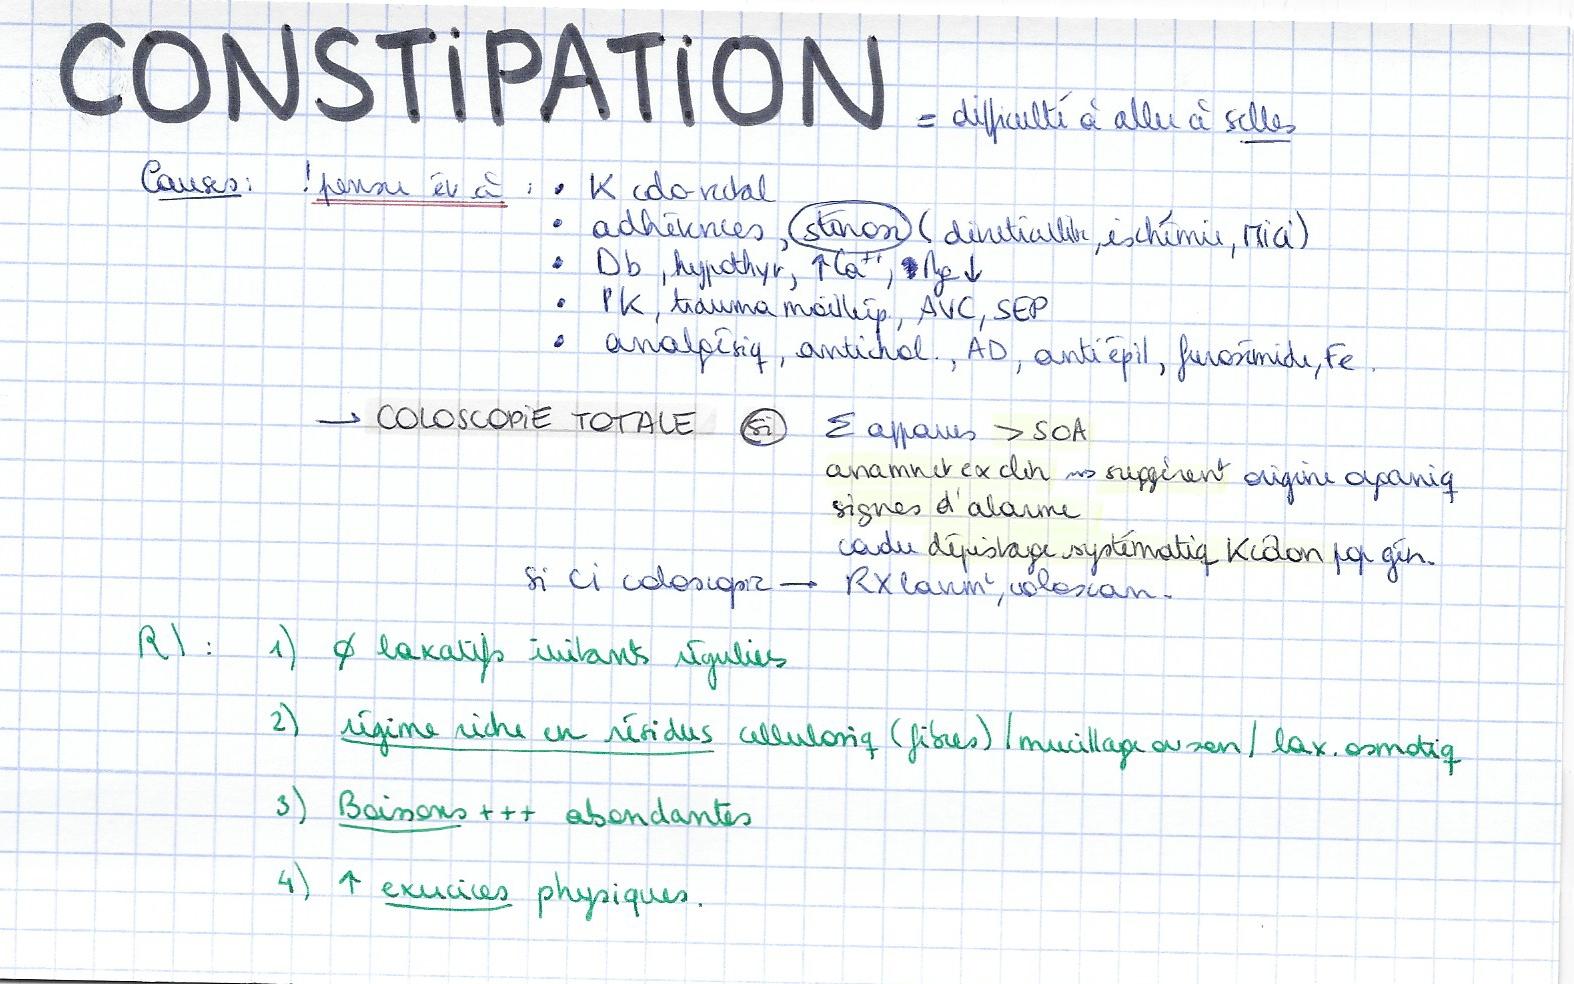 CONSTIPATION = difficulté à aller à selles
Causes: ! penser év à : • K colo-rectal
• adhérences, sténose (diverticulite, ischémie, MICI)
• Db, hypothyr, ↑Ca++, Mg↓
• PK, trauma moëlle ép, AVC, SEP
• analgésiq, antichol., AD, antiépil, furosémide, Fe.
→ COLOSCOPIE TOTALE si Σ apparus > 50A
anamn et ex clin ⇝ suggèrent origine organiq
signes d'alarme
cadre dépistage systématiq K côlon pop gén.
si CI coloscopie → RX lavmt, coloscan.
R/ : 1) ∅ laxatifs irritants réguliers
2) régime riche en résidus cellulosiq (fibres) / mucillage ou son / lax. osmotiq
3) Boissons +++ abondantes
4) ↑ exercices physiques.